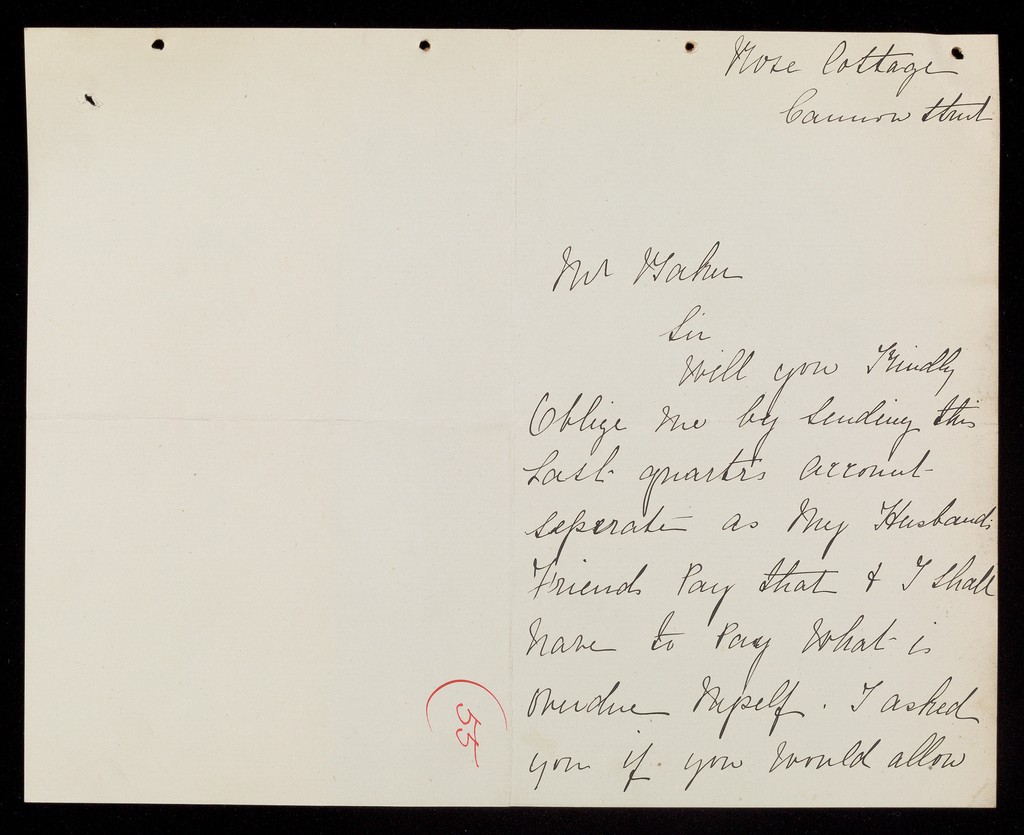 Rose Cottage
Cannon Street
Mr Baker
Sir
Will you Kindly
Oblige me by Sending this
Last quarters account
seperate as My Husbands
Friends Pay that & I shall
have to Pay What is
overdue Myself. I asked
you if you Would allow
55